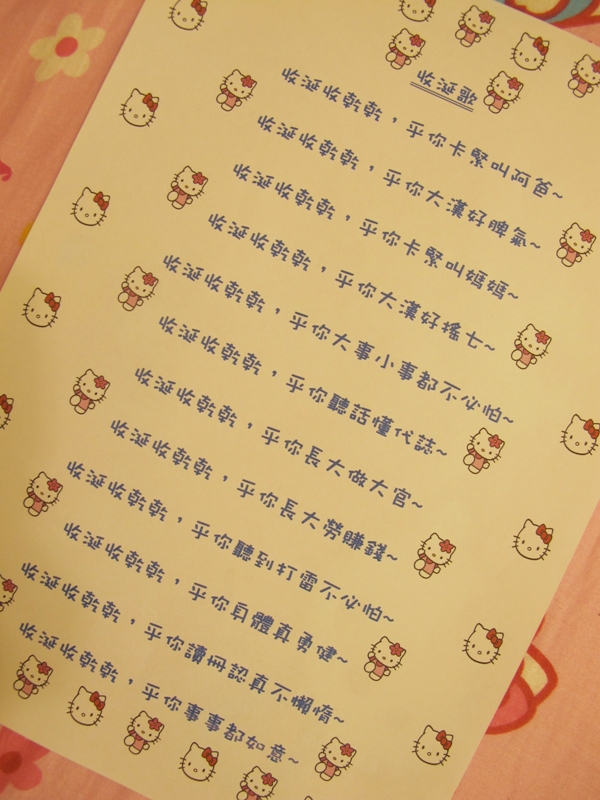 收涎歌
收涎收乾乾，乎你卡緊叫阿爸~
收涎收乾乾，乎你大漢好脾氣~
收涎收乾乾，乎你卡緊叫媽媽~
收涎收乾乾，乎你大漢好搖七~
收涎收乾乾，乎你大事小事都不必怕~
收涎收乾乾，乎你聽話懂代誌~
收涎收乾乾，乎你長大做大官~
收涎收乾乾，乎你長大勞賺錢~
收涎收乾乾，乎你聽到打雷不必怕~
收涎收乾乾，乎你身體真勇健~
收涎收乾乾，乎你讀冊認真不懶惰~
收涎收乾乾，乎你事事都如意~